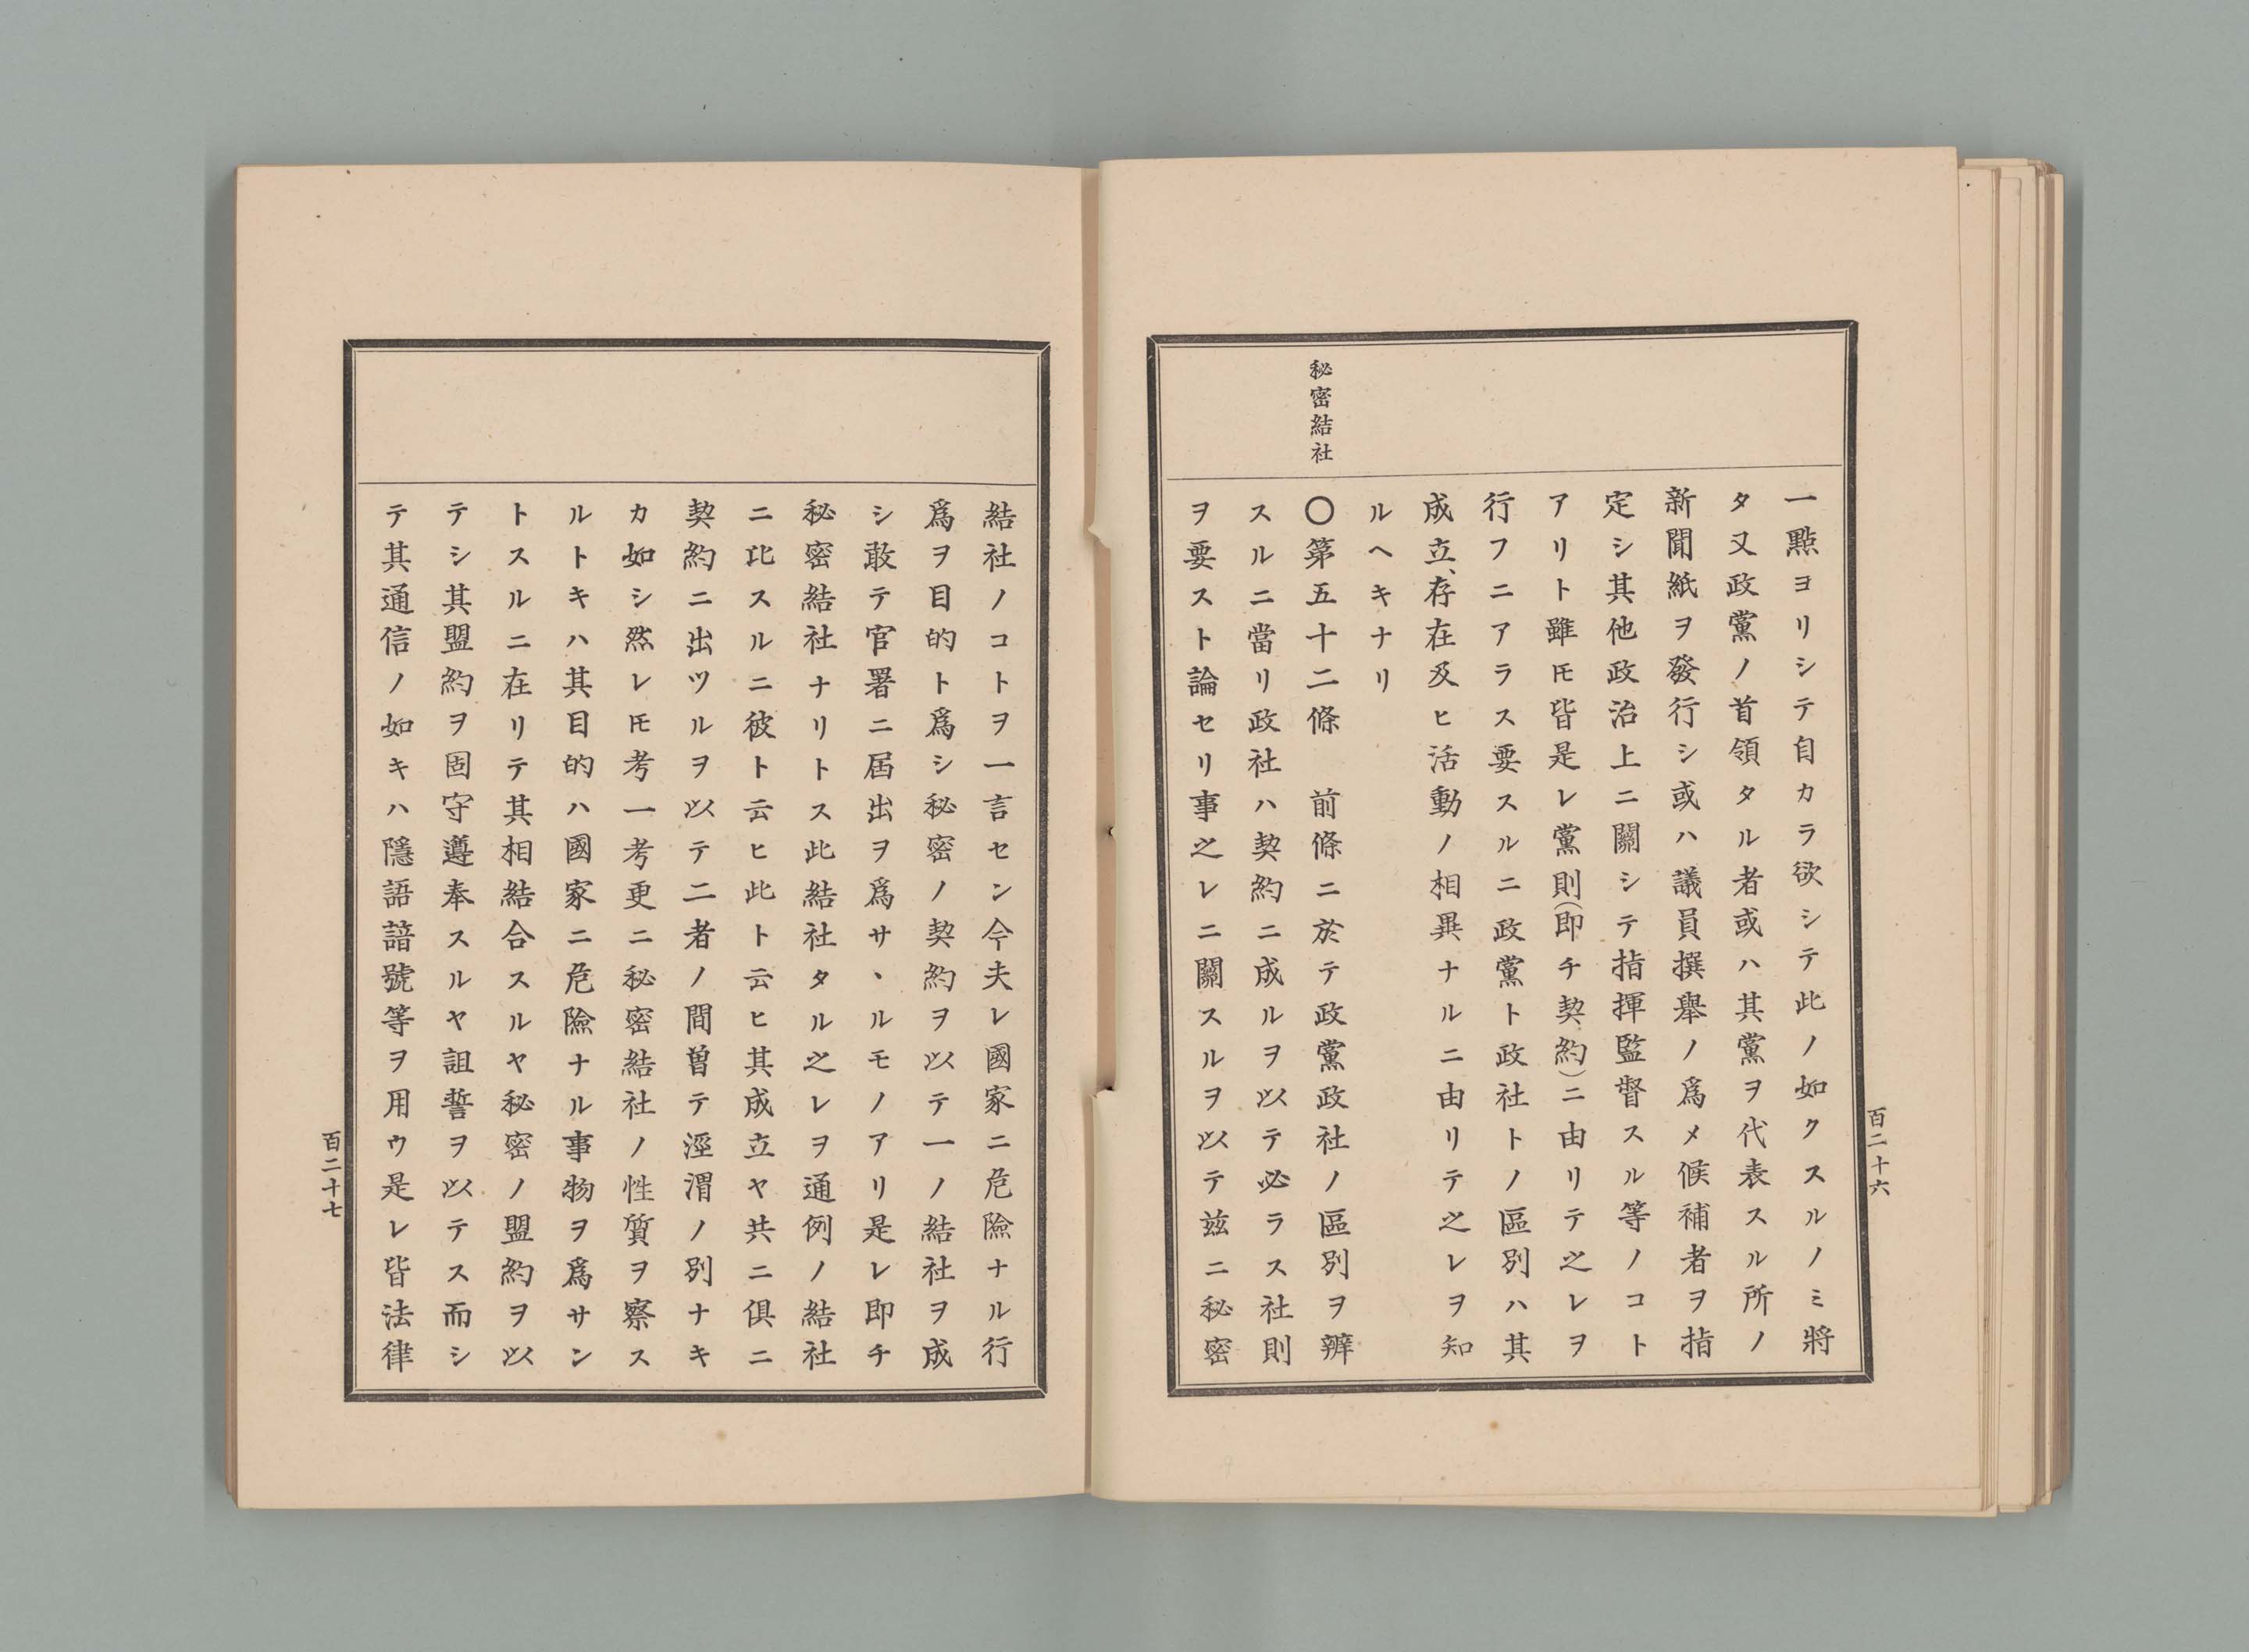 百二十六
秘密結社
一點ヨリシテ自カラ欲シテ此ノ如クスルノミ將
タ又政黨ノ首領タル者或ハ其黨ヲ代表スル所ノ
新聞紙ヲ發行シ或ハ議員撰擧ノ爲メ候補者ヲ指
定シ其他政治上ニ關シテ指揮監督スル等ノコト
アリト雖𪜈皆是レ黨則(即チ契約)ニ由リテ之レヲ
行フニアラス要スルニ政黨ト政社トノ區別ハ其
成立、存在及ヒ活動ノ相異ナルニ由リテ之レヲ知
ルヘキナリ
〇第五十二條　前條ニ於テ政黨政社ノ區別ヲ辨
スルニ當リ政社ハ契約ニ成ルヲ以テ必ラス社則
ヲ要スト論セリ事之レニ關スルヲ以テ玆ニ秘密
結社ノコトヲ一言セン今夫レ國家ニ危險ナル行
爲ヲ目的ト爲シ秘密ノ契約ヲ以テ一ノ結社ヲ成
シ敢テ官署ニ届出ヲ爲サヽルモノアリ是レ即チ
秘密結社ナリトス此結社タル之レヲ通例ノ結社
ニ比スルニ彼ト云ヒ此ト云ヒ其成立ヤ共ニ俱ニ
契約ニ出ツルヲ以テ二者ノ間曾テ涇渭ノ別ナキ
カ如シ然レ𪜈考一考更ニ秘密結社ノ性質ヲ察ス
ルトキハ其目的ハ國家ニ危險ナル事物ヲ爲サン
トスルニ在リテ其相結合スルヤ秘密ノ盟約ヲ以
テシ其盟約ヲ固守遵奉スルヤ詛誓ヲ以テス而シ
テ其通信ノ如キハ隱語諳號等ヲ用ウ是レ皆法律
百二十七